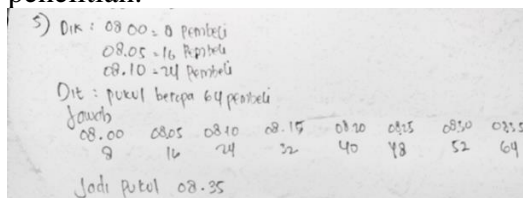 5) Dik : 08 00 = 8 pembeli
08.05 = 16 Pembeli
08.10 = 24 Pembeli
Dit : pukul berapa 64 pembeli
Jawab
08.00 08.05 08 10 08.15 08 20 08.25 08.30 08.35
8 16 24 32 40 48 52 64
Jadi Pukul 08.35